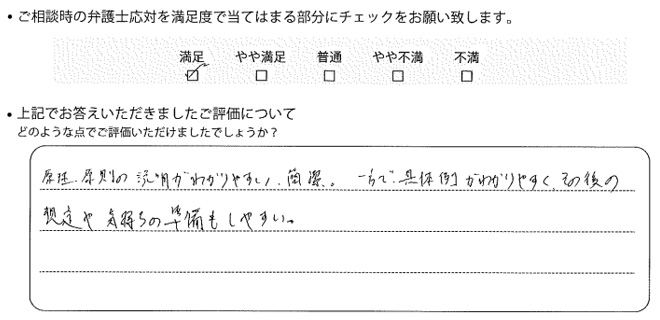 • ご相談時の弁護士応対を満足度で当てはまる部分にチェックをお願い致します。
満足 やや満足 普通 やや不満 不満
• 上記でお答えいただきましたご評価について
どのような点でご評価いただけましたでしょうか？
原則の説明がわかりやすい、簡潔。一方で、具体例がわかりやすく、その後の
想定や気持ちの準備もしやすい。